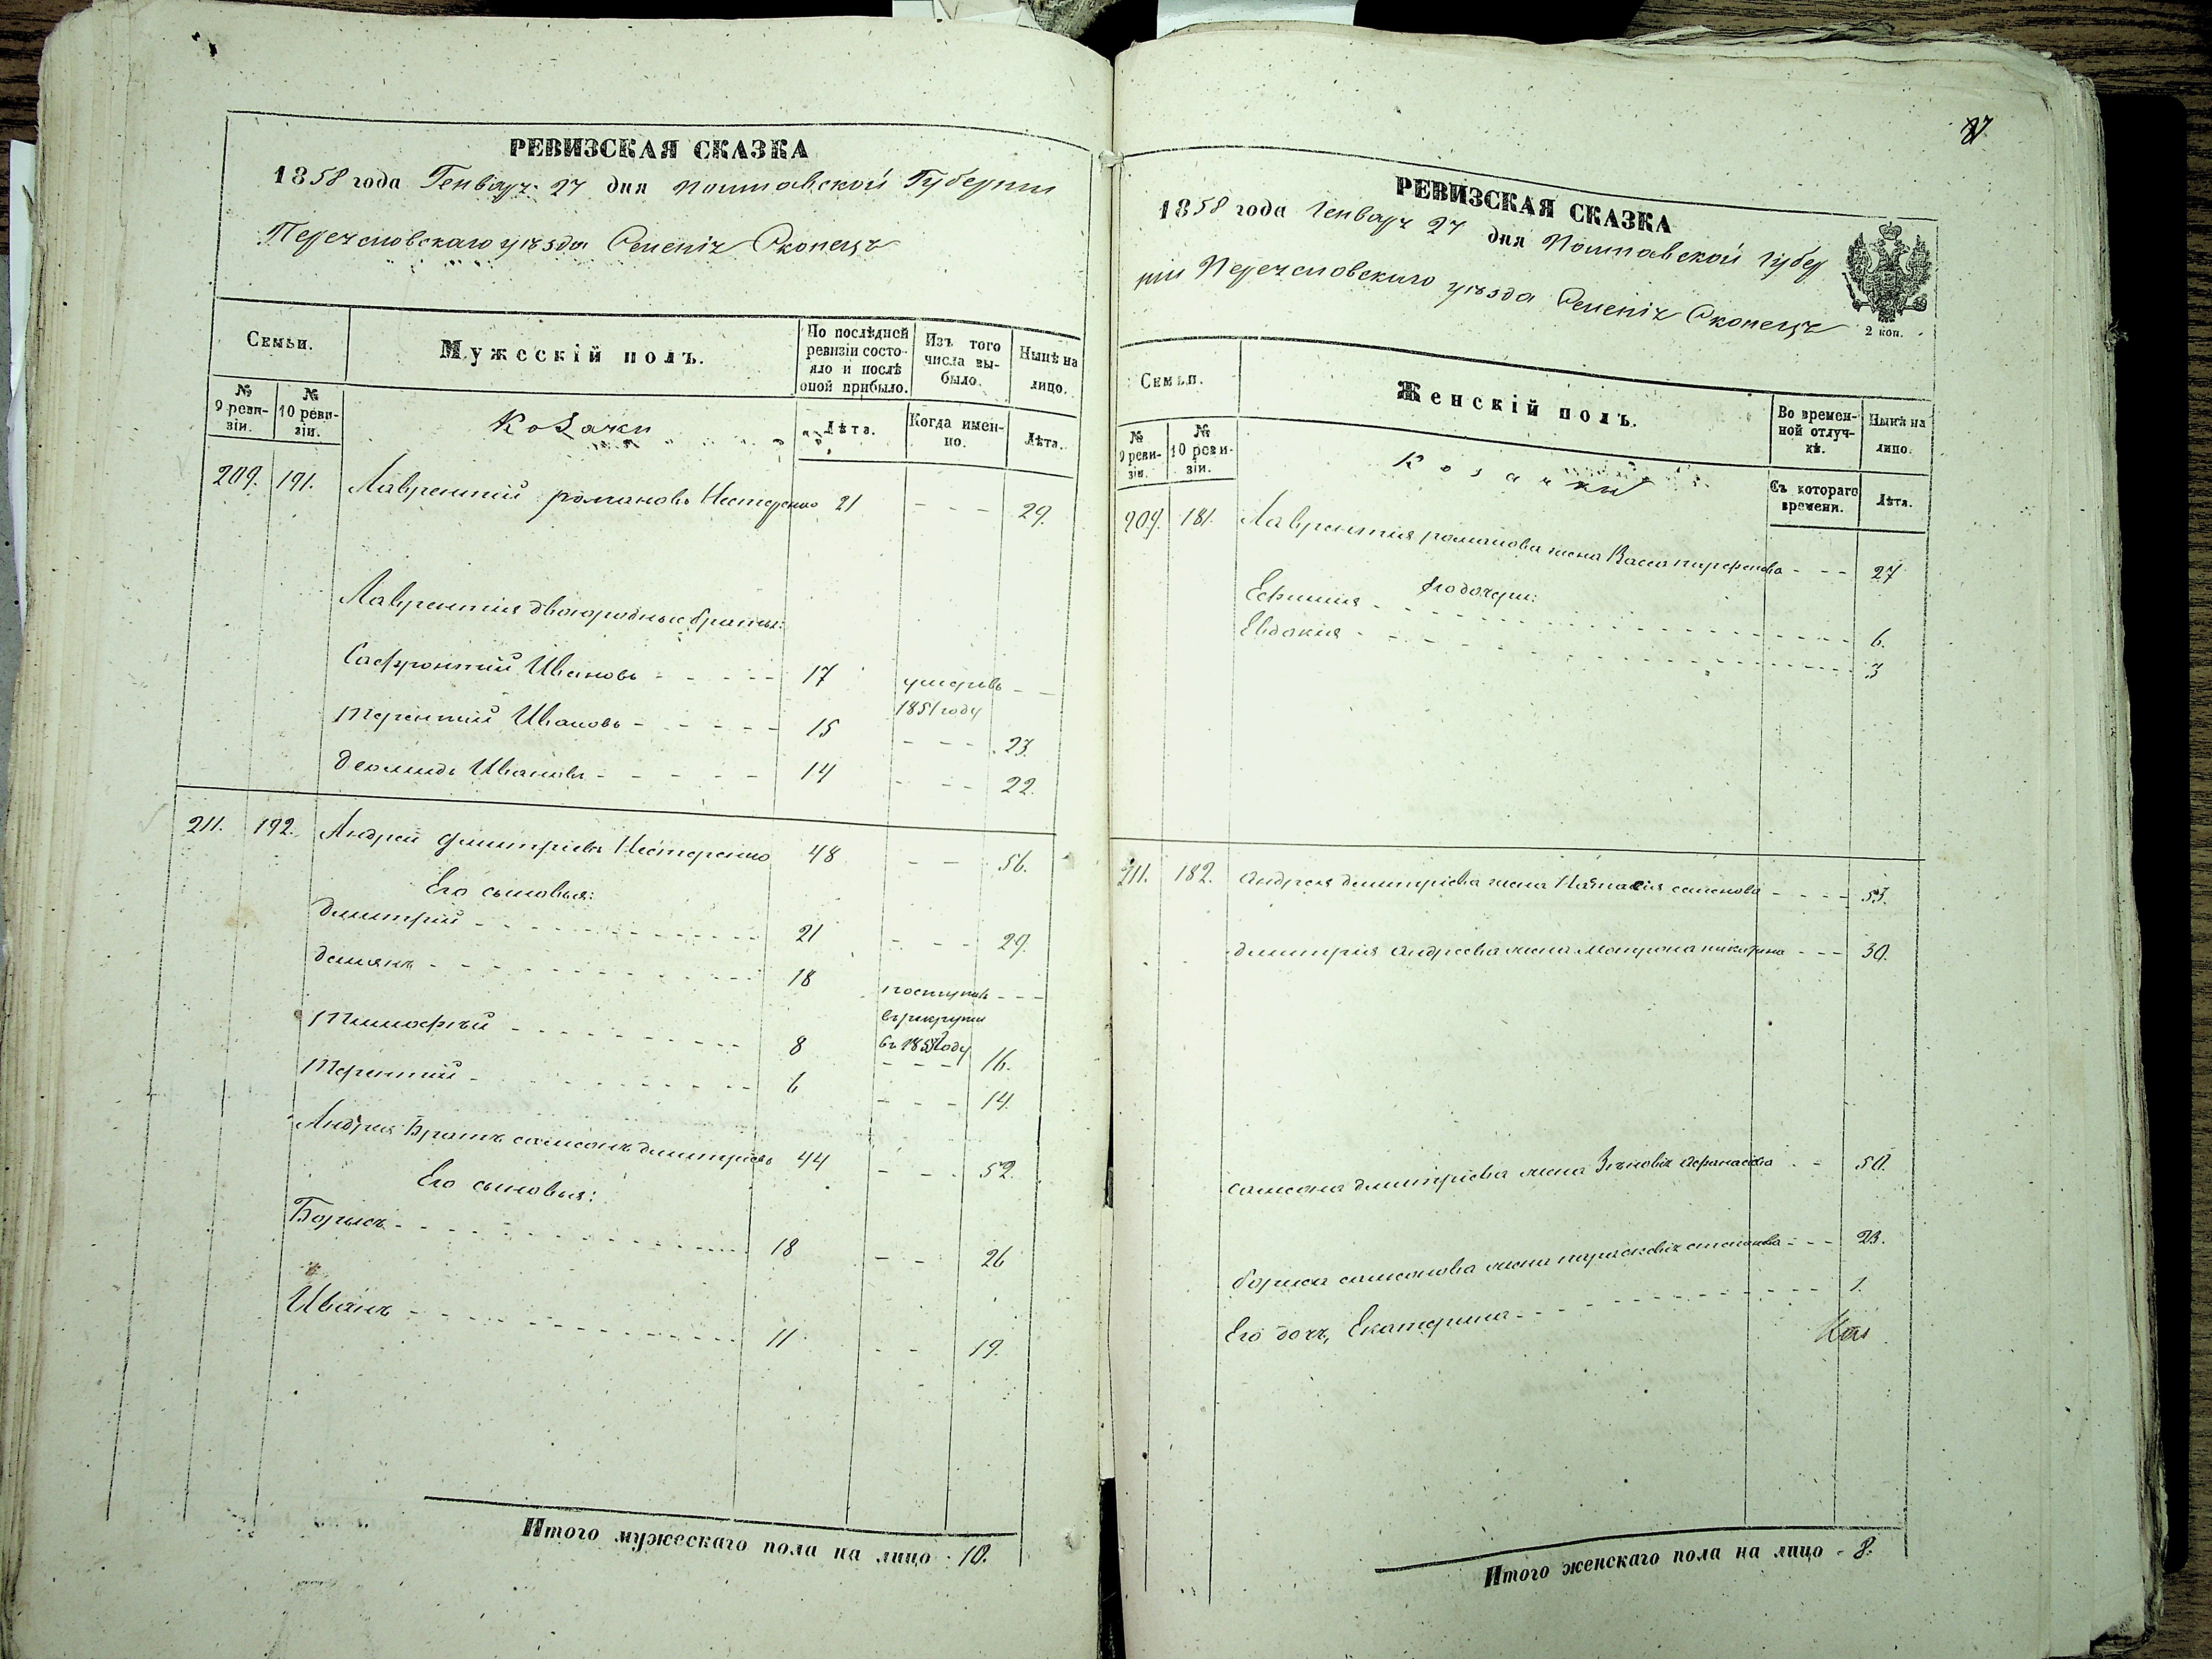 РЕВИЗСКАЯ СКАЗКА
1858 года Генваря 27 дня Полтавской Губерніи
Переясловскаго уѣзда Селенія Скопецъ
Семьи.
Мужескій полъ.
По послѣдней ревизіи состояло и послѣ оной прибыло.
Изъ того числа выбыло.
Нынѣ на лицо.
№ 9 ревизіи.
№ 10 ревизіи.
Козаки
Лѣта.
Когда именно.
Лѣта.
209. 191. Лаврентий романовъ Нестеренко 21 - - - 29.
Лаврентия двоюродные братья:
Сафронтий Ивановъ - - - - - 17 умеръ - -
1851 году
Терентий Ивановъ - - - - - 15 - - - 23.
Демидъ Ивановъ - - - - - 14 - - - 22.
211. 192. Андрей Дмитріевъ Нестеренко 48 - - 56.
Его сыновья:
Дмитрий - - - - - 21 - - - 29.
Демянъ - - - - - 18 поступилъ - - -
въ рекруты
въ году
Тимофѣй - - - - - 8 - - - 16.
Терентий - - - - - 6 - - - 14.
Андрея Братъ самсонъ дмитріевъ 44 - - - 52.
Его сыновья:
Борисъ - - - - - 18 - - 26
Иванъ - - - - - 11 - - 19.
Итого мужескаго пола на лицо - 10.
РЕВИЗСКАЯ СКАЗКА
1858 года Генваря 27 дня Полтавской Губер
ніи Переясловскаго уѣзда Селенія Скопецъ
2 коп.
Семьи.
Женскій полъ.
Во временной отлучкѣ.
Нынѣ на лицо.
№ 9 ревизіи.
№ 10 ревизіи.
Козачки
Съ котораго времени.
Лѣта.
209. 181. Лаврентия романова жена Васса парфенова - - - 27
Его дочери:
Ефимия - - - - - 6.
Евдокия - - - - - 3
211. 182. Андрея дмитріева жена Наталия семенова - - - - 53.
дмитрия андреева жена Матрона никитина - - - 30.
самсона дмитріева жена Зѣновія Афанасьева - - 50.
бориса самсонова жена параскевія степанова - - - 23.
Его дочь, Екатерина - - - - - 1.
Итого женскаго пола на лицо - 8.